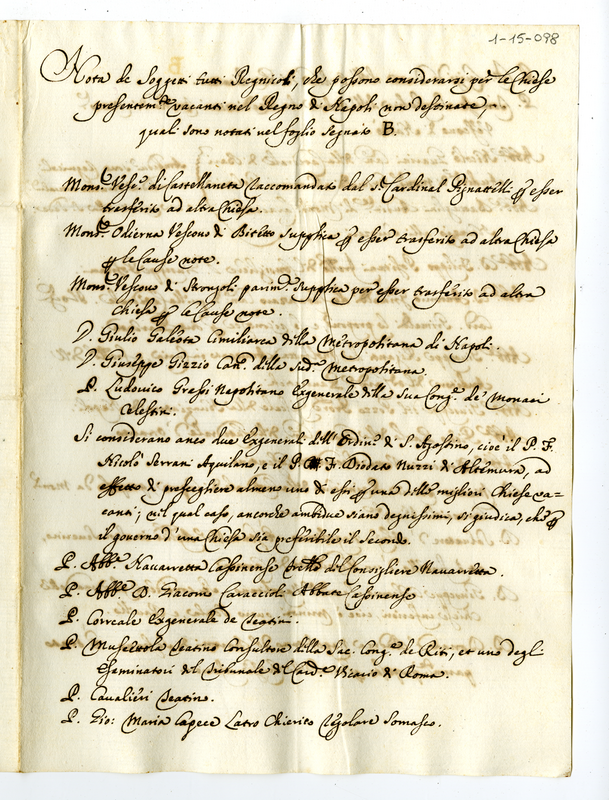 1-15-098
Nota de Soggetti tutti Regnicoli, che possono considerarsi per le Chiese
presentem.te vacanti nel Regno di Napoli non destinate,
quali sono notati nel foglio segnato B.
Mons.r Vesc.o di Castellaneta raccomandato dal S.r Cardinal Pignattelli per esser
trasferito ad altra Chiesa.
Mons.r Odierna Vescovo di Bitetto supplica per esser trasferito ad altra Chiesa
per le Cause note.
Mons.r Vescovo di Strongoli parim.te supplica per esser trasferito ad altra
Chiesa per le Cause note.
D. Giulio Galeota Cimiliarca della Metropolitana di Napoli.
D. Giuseppe Pizzio Can.co della sud.a Metropolitana.
P. Ludovico Grassi Napolitano Exgenerale della sua Cong.e de Monaci
Celestini.
Si considerano anco due Exgenerali dell'Ordin.e di S. Agostino, cioè il P. F.
Nicolò Serrani Aquilano, e il P. F. Diodato Nuzzi di Altamura, ad
effetto di presceghiere almeno uno di essi per una delle migliori Chiese va=
canti; nel qual caso, ancorche ambidue siano degnissimi, si giudica, che per
il governo d'una Chiesa sia preferibile il secondo.
P. Abb.e Navarretta Cassinense fratello del Consigliere Navarretta.
P. Abb.e D. Giacomo Caraccioli Abbate Cassinense
P. Correale Exgenerale de Teatini.
P. Muscettola Teatino Consultore della Sac. Cong.e de Riti, et uno degl
Esaminatori del Tribunale del Card.e Vicario di Roma.
P. Cavalieri Teatino.
P. Gio: Maria Capece Latro Chierico Regolare Somasco.